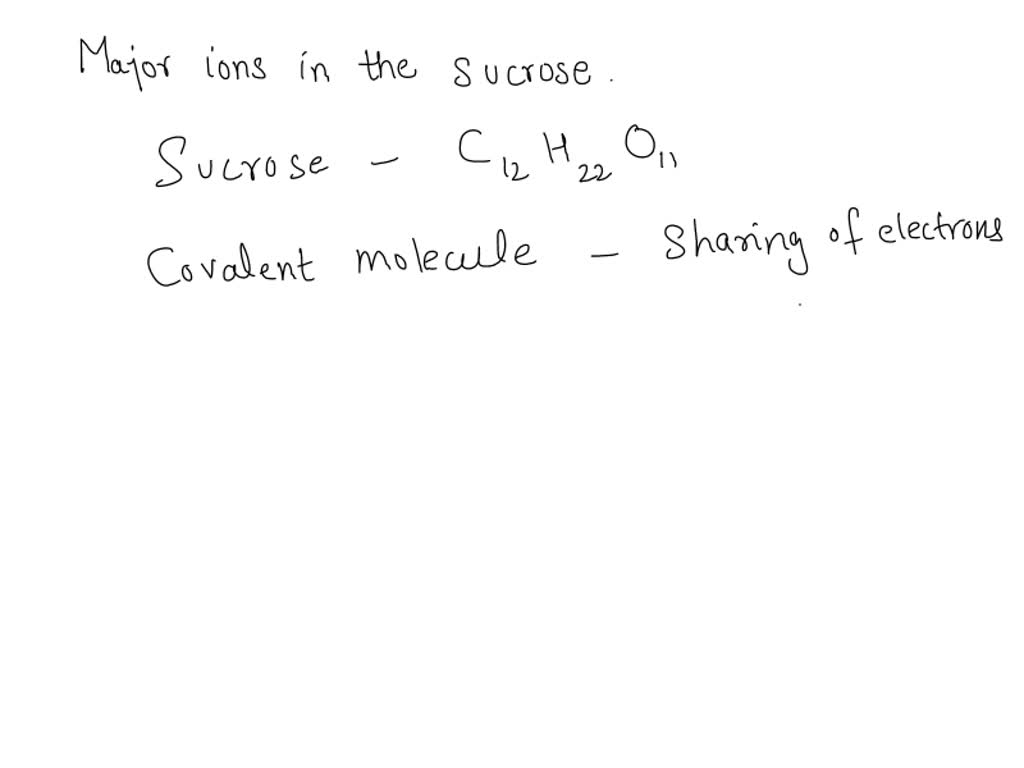 Major ions in the sucrose.
Sucrose - C₁₂H₂₂O₁₁
Covalent molecule - Sharing of electrons